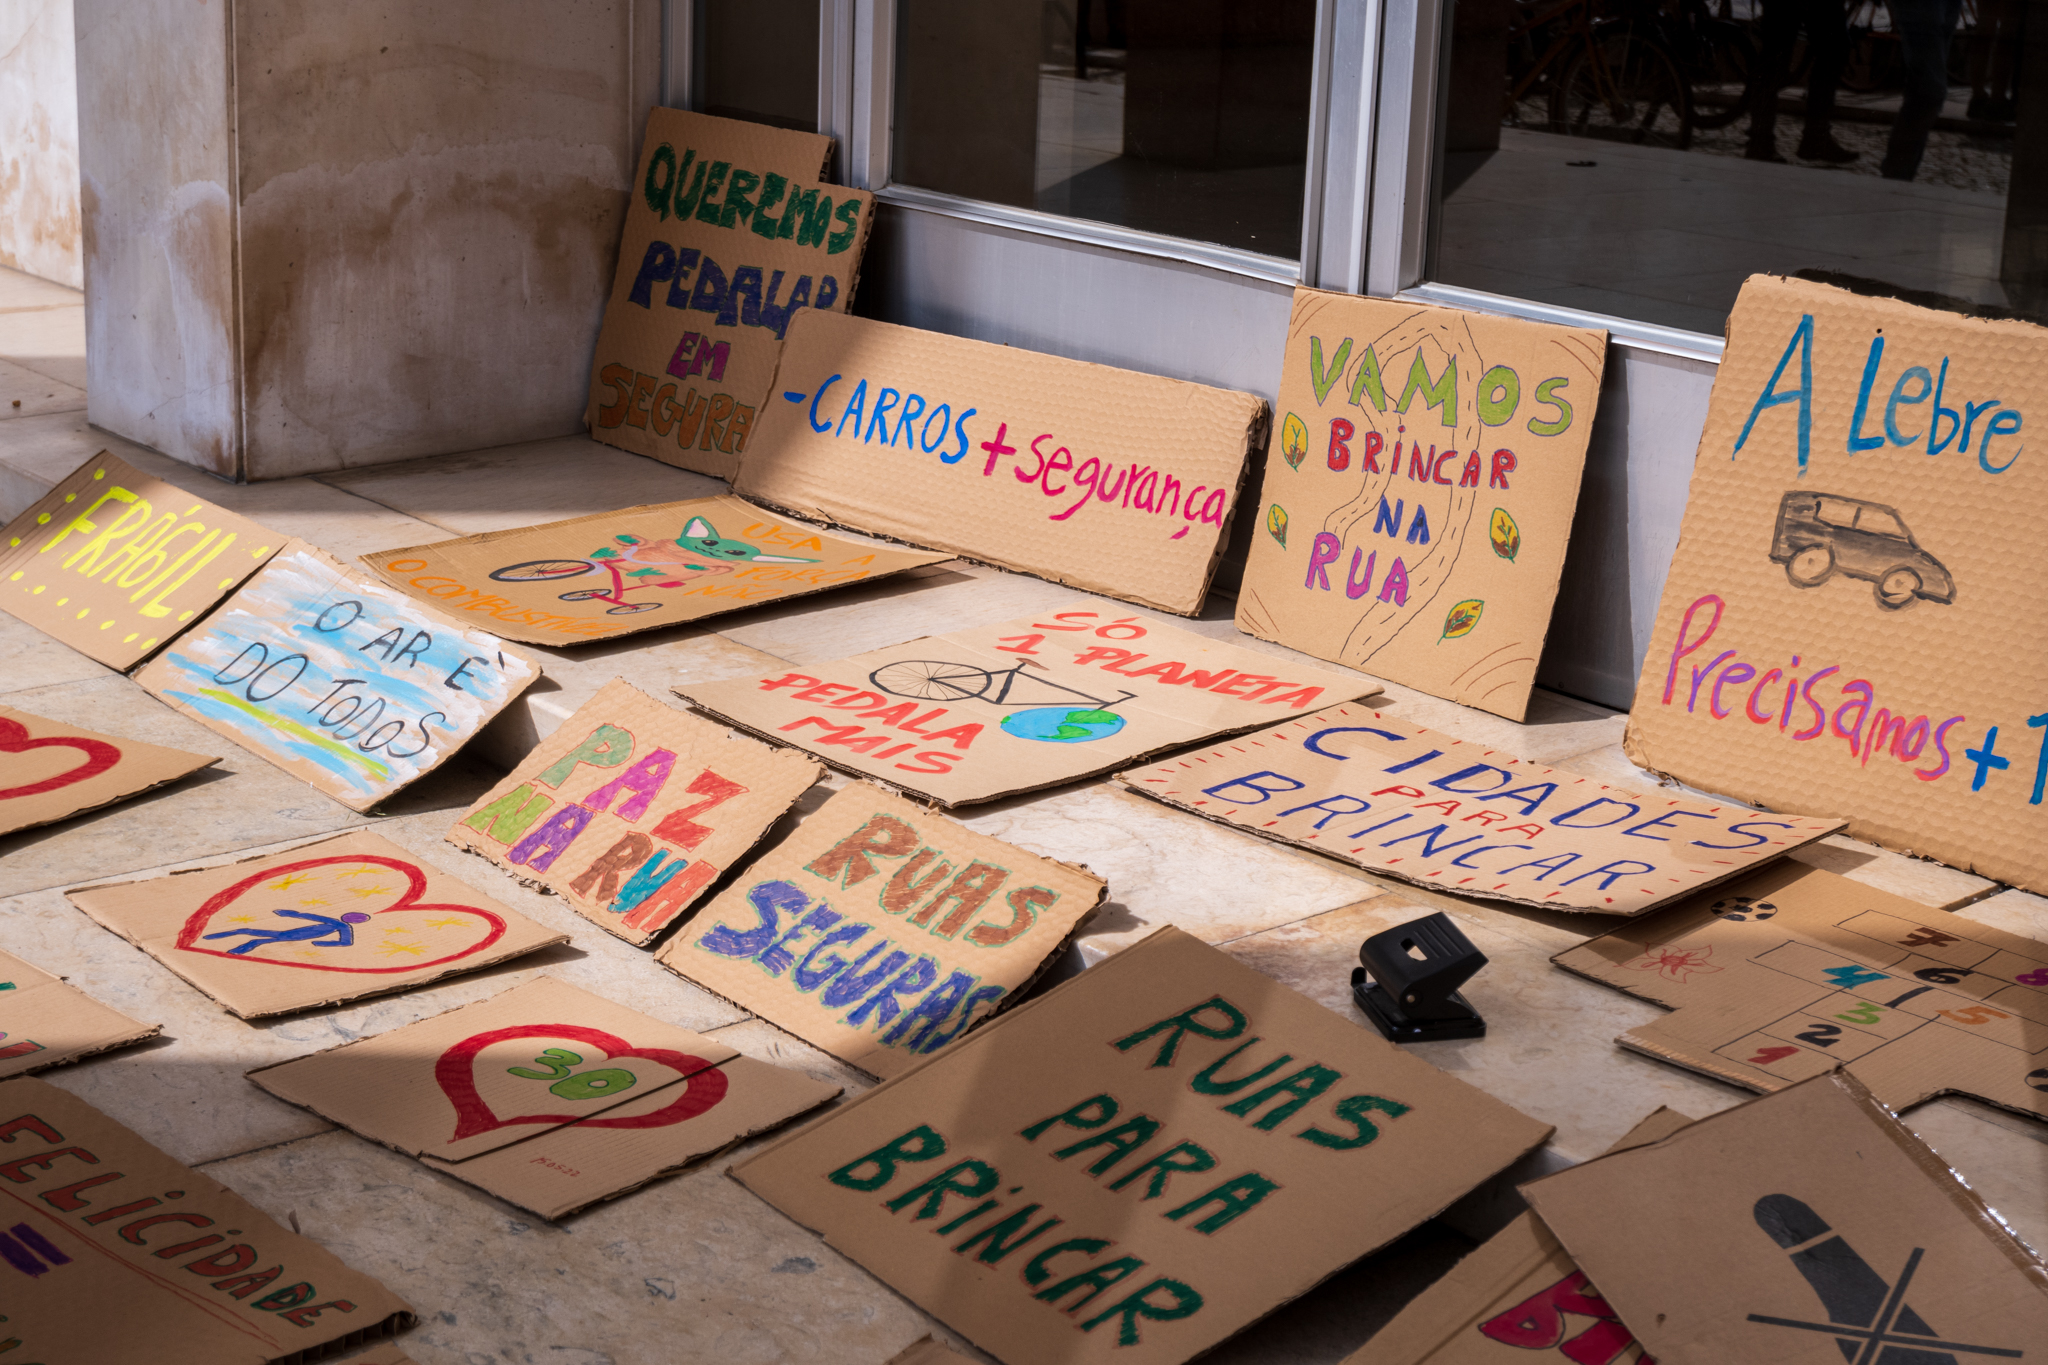 QUEREMOS
PEDALAR
EM
SEGURA
-CARROS + Segurança
VAMOS
BRINCAR
NA
RUA
A Lebre
Precisamos + 1
FRÁGIL
O AR É
DO TODOS
USA A
FORÇA
NÃO
O COMBUSTÍVEL
SÓ
1 PLANETA
PEDALA
MAIS
CIDADES
PARA
BRINCAR
PAZ
NA RUA
RUAS
SEGURAS
30
RUAS
PARA
BRINCAR
7
4 6 8
3 5
1 2
FELICIDADE
=